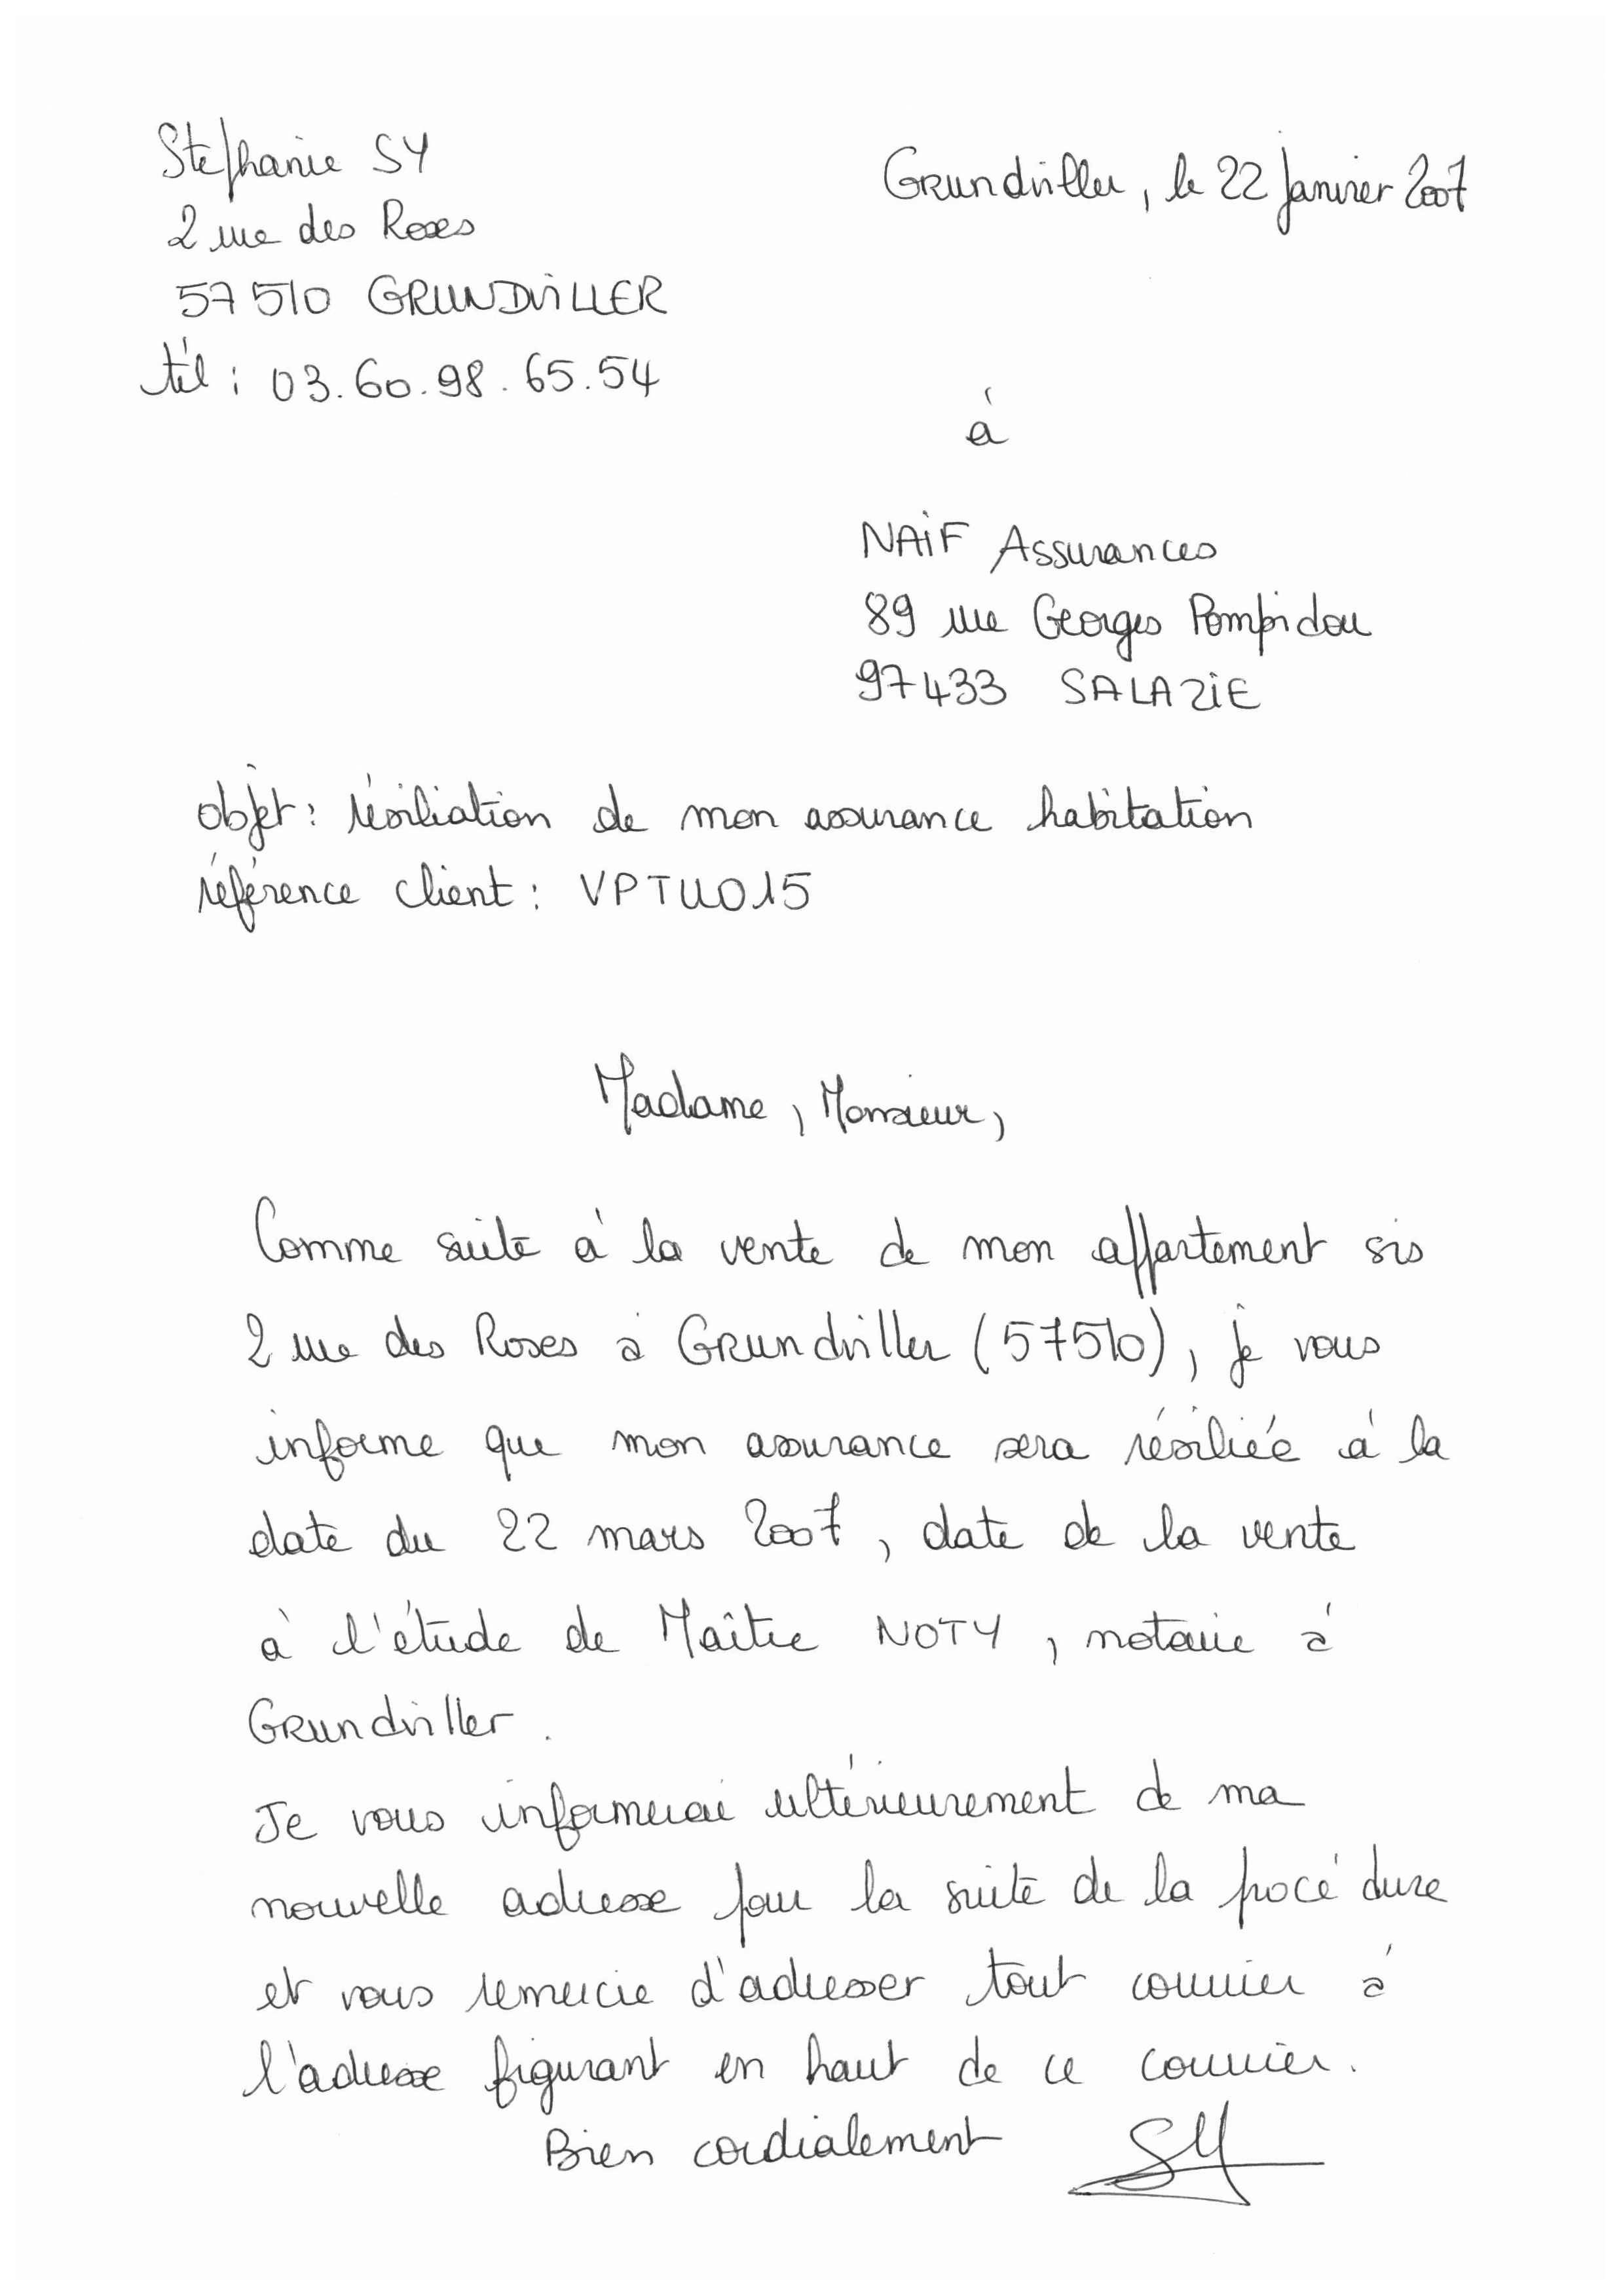 Stéphanie SY
2 rue des Roses
57510 GRUNDVILLER
tél : 03.60.98.65.54
Grundviller, le 22 janvier 2007
à
NAIF Assurances
89 rue Georges Pompidou
97433 SALAZIE
objet : résiliation de mon assurance habitation
référence client : VPTUO15
Madame, Monsieur,
Comme suite à la vente de mon appartement sis
2 rue des Roses à Grundviller (57510), je vous
informe que mon assurance sera résiliée à la
date du 22 mars 2007, date de la vente
à l'étude de Maître NOTY, notaire à
Grundviller.
Je vous informerai ultérieurement de ma
nouvelle adresse pour la suite de la procédure
et vous remercie d'adresser tout courrier à
l'adresse figurant en haut de ce courrier.
Bien cordialement
SY